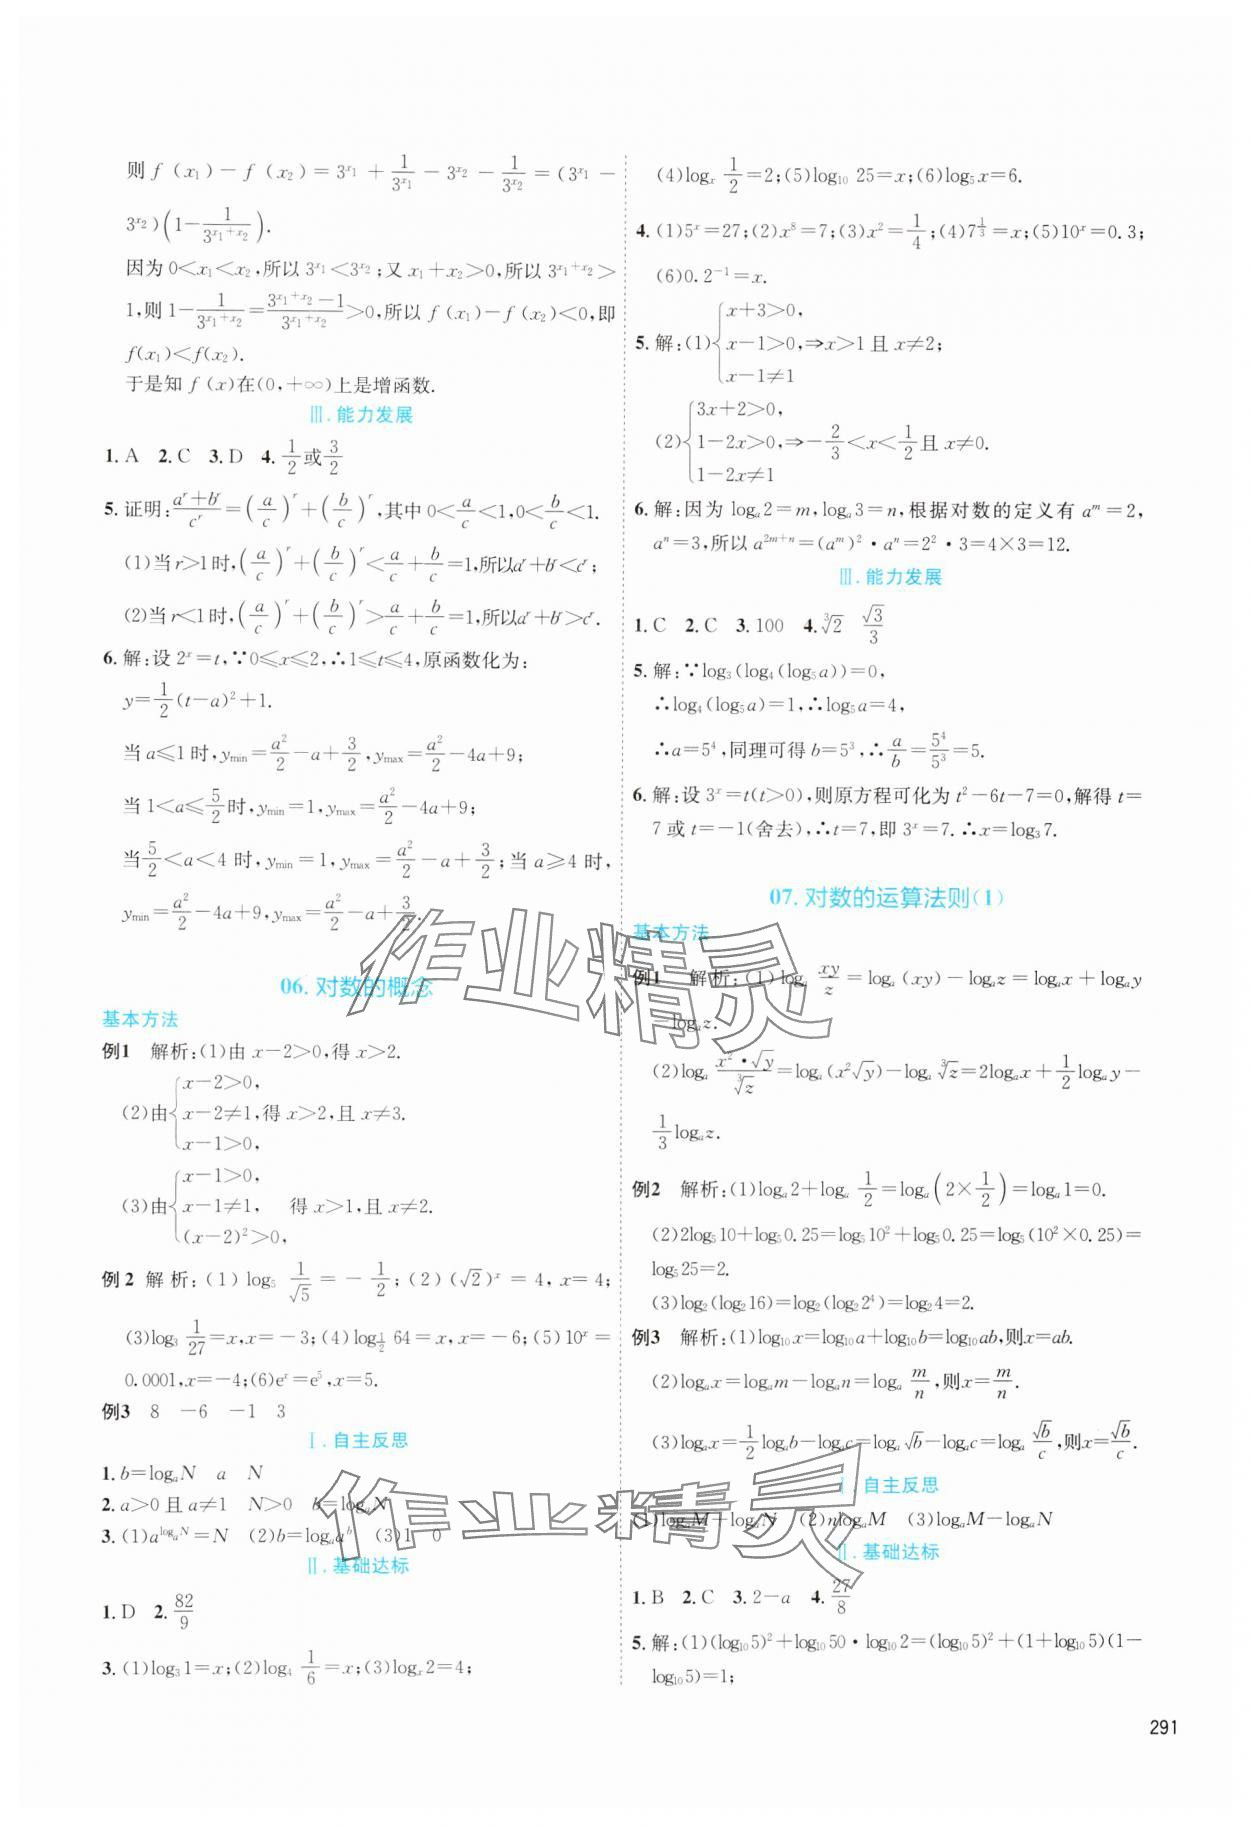 则 f(x₁)－f(x₂)＝3^{x₁}＋\frac{1}{3^{x₁}}－3^{x₂}－\frac{1}{3^{x₂}}＝(3^{x₁}－
3^{x₂})(1－\frac{1}{3^{x₁＋x₂}}).
因为 0＜x₁＜x₂,所以 3^{x₁}＜3^{x₂};又 x₁＋x₂＞0,所以 3^{x₁＋x₂}＞
1,则 1－\frac{1}{3^{x₁＋x₂}}＝\frac{3^{x₁＋x₂}－1}{3^{x₁＋x₂}}＞0,所以 f(x₁)－f(x₂)＜0,即
f(x₁)＜f(x₂).
于是知 f(x)在(0,＋∞)上是增函数.
Ⅲ.能力发展
1. A 2. C 3. D 4. \frac{1}{2}或\frac{3}{2}
5. 证明:\frac{a^r＋b^r}{c^r}＝(\frac{a}{c})^r＋(\frac{b}{c})^r,其中 0＜\frac{a}{c}＜1,0＜\frac{b}{c}＜1.
(1)当 r＞1 时,(\frac{a}{c})^r＋(\frac{b}{c})^r＜\frac{a}{c}＋\frac{b}{c}＝1,所以a^r＋b^r＜c^r;
(2)当 r＜1 时,(\frac{a}{c})^r＋(\frac{b}{c})^r＞\frac{a}{c}＋\frac{b}{c}＝1,所以a^r＋b^r＞c^r.
6. 解:设 2^x＝t,∵0≤x≤2,∴1≤t≤4,原函数化为:
y＝\frac{1}{2}(t－a)²＋1.
当 a≤1 时,y_{min}＝\frac{a²}{2}－a＋\frac{3}{2},y_{max}＝\frac{a²}{2}－4a＋9;
当 1＜a≤\frac{5}{2}时,y_{min}＝1,y_{max}＝\frac{a²}{2}－4a＋9;
当\frac{5}{2}＜a＜4 时,y_{min}＝1,y_{max}＝\frac{a²}{2}－a＋\frac{3}{2};当 a≥4 时,
y_{min}＝\frac{a²}{2}－4a＋9,y_{max}＝\frac{a²}{2}－a＋\frac{3}{2}.
06. 对数的概念
基本方法
例1 解析:(1)由 x－2＞0,得 x＞2.
(2)由{x－2＞0,
x－2≠1,得 x＞2,且 x≠3.
x－1＞0,
(3)由{x－1＞0,
x－1≠1, 得 x＞1,且 x≠2.
(x－2)²＞0,
例2 解析:(1)log₅ \frac{1}{√5}＝－\frac{1}{2};(2)(√2)^x＝4,x＝4;
(3)log₃ \frac{1}{27}＝x,x＝－3;(4)log_{\frac{1}{2}} 64＝x,x＝－6;(5)10^x＝
0.0001,x＝－4;(6)e^x＝e⁵,x＝5.
例3 8 －6 －1 3
Ⅰ.自主反思
1. b＝log_aN a N
2. a＞0 且 a≠1 N＞0 b＝log_aN
3. (1)a^{log_aN}＝N (2)b＝log_aa^b (3)1 0
Ⅱ.基础达标
1. D 2. \frac{82}{9}
3. (1)log₃1＝x;(2)log₄ \frac{1}{6}＝x;(3)log_x2＝4;
(4)log_x \frac{1}{2}＝2;(5)log₁₀ 25＝x;(6)log₅x＝6.
4. (1)5^x＝27;(2)x⁸＝7;(3)x²＝\frac{1}{4};(4)7^{\frac{1}{3}}＝x;(5)10^x＝0.3;
(6)0.2^{－1}＝x.
5. 解:(1){x＋3＞0,
x－1＞0,⇒x＞1 且 x≠2;
x－1≠1
(2){3x＋2＞0,
1－2x＞0,⇒－\frac{2}{3}＜x＜\frac{1}{2}且 x≠0.
1－2x≠1
6. 解:因为 log_a2＝m,log_a3＝n,根据对数的定义有 a^m＝2,
a^n＝3,所以 a^{2m＋n}＝(a^m)²·a^n＝2²·3＝4×3＝12.
Ⅲ.能力发展
1. C 2. C 3. 100 4. ∛2 \frac{√3}{3}
5. 解:∵log₃(log₄(log₅a))＝0,
∴log₄(log₅a)＝1,∴log₅a＝4,
∴a＝5⁴,同理可得 b＝5³,∴\frac{a}{b}＝\frac{5⁴}{5³}＝5.
6. 解:设 3^x＝t(t＞0),则原方程可化为 t²－6t－7＝0,解得 t＝
7 或 t＝－1(舍去),∴t＝7,即 3^x＝7.∴x＝log₃7.
07. 对数的运算法则(1)
基本方法
例1 解析:(1)log_a \frac{xy}{z}＝log_a(xy)－log_az＝log_ax＋log_ay
－log_az.
(2)log_a \frac{x²·√y}{∛z}＝log_a(x²√y)－log_a ∛z＝2log_ax＋\frac{1}{2}log_ay－
\frac{1}{3}log_az.
例2 解析:(1)log_a2＋log_a \frac{1}{2}＝log_a(2×\frac{1}{2})＝log_a1＝0.
(2)2log₅10＋log₅0.25＝log₅10²＋log₅0.25＝log₅(10²×0.25)＝
log₅25＝2.
(3)log₂(log₂16)＝log₂(log₂2⁴)＝log₂4＝2.
例3 解析:(1)log₁₀x＝log₁₀a＋log₁₀b＝log₁₀ab,则x＝ab.
(2)log_ax＝log_am－log_an＝log_a \frac{m}{n},则x＝\frac{m}{n}.
(3)log_ax＝\frac{1}{2}log_ab－log_ac＝log_a√b－log_ac＝log_a \frac{√b}{c},则x＝\frac{√b}{c}.
Ⅰ.自主反思
(1)log_aM＋log_aN (2)nlog_aM (3)log_aM－log_aN
Ⅱ.基础达标
1. B 2. C 3. 2－a 4. \frac{27}{8}
5. 解:(1)(log₁₀5)²＋log₁₀50·log₁₀2＝(log₁₀5)²＋(1＋log₁₀5)(1－
log₁₀5)＝1;
作业精灵
作业精灵
291